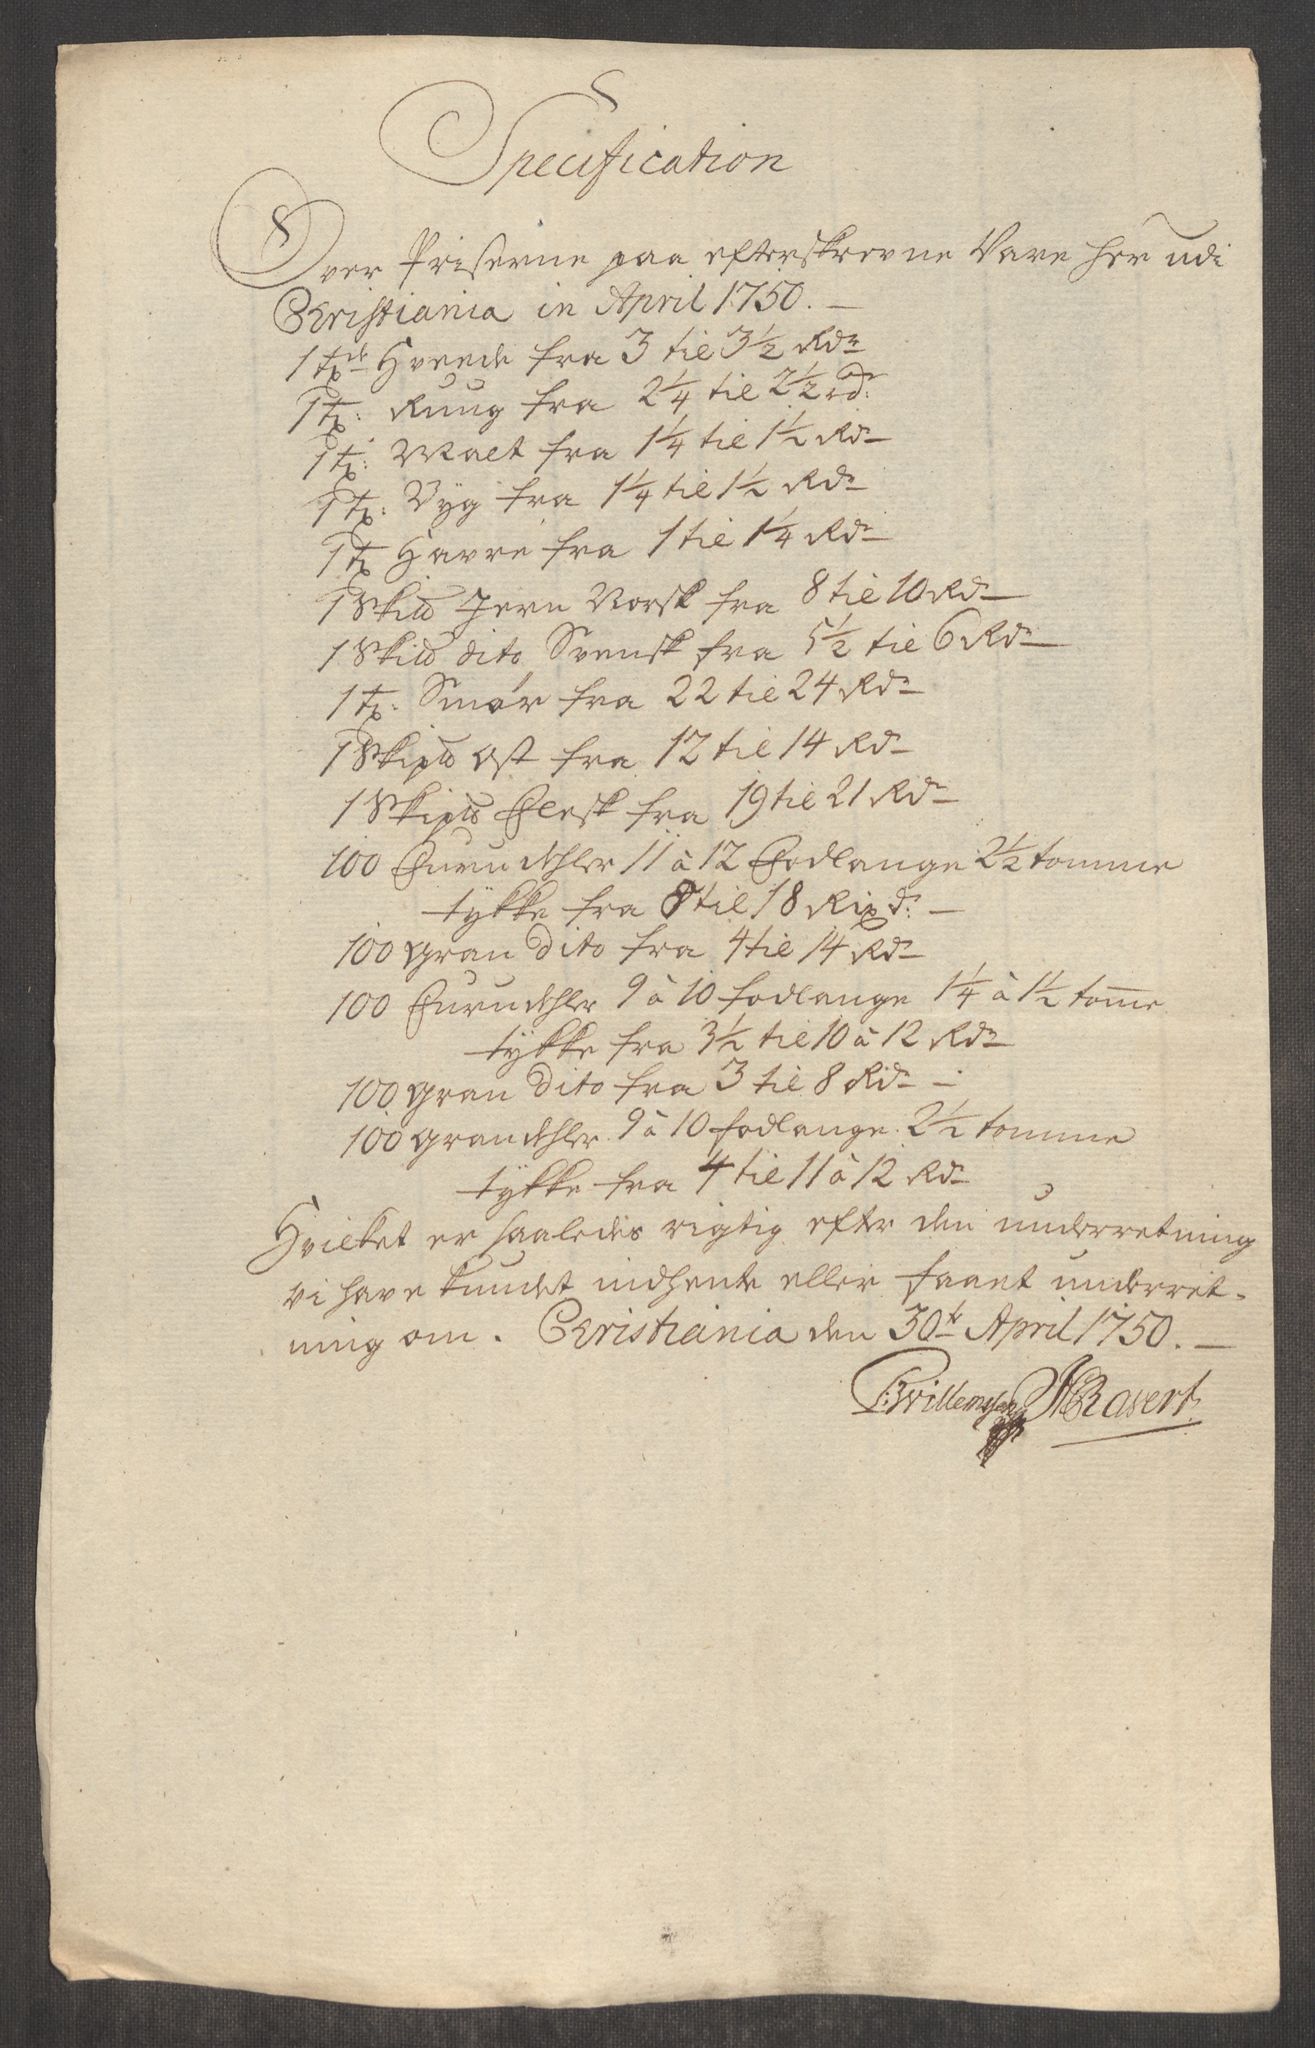 Specification
Over Priserne paa efterskrevne Vare her udi
Christiania in April 1750. —
1 tde Hvede fra 3 til 3½ Rdr
1 t: Ruug fra 2¼ til 2½ rdr:
1 t: Malt fra 1¼ til 1½ Rdr
1 t: Byg fra 1¼ til 1½ Rdr
1 t Havre fra 1 til 1¼ Rdr
1 Skip℔ Jern Norsk fra 8 til 10 Rdr
1 Skip℔ dito Svensk fra 5½ til 6 Rdr
1 t: Smør fra 22 til 24 Rdr
1 Skip℔ Ost fra 12 til 14 Rdr
1 Skip℔ Flesk fra 19 til 21 Rdr
100 Furu dehler 11 à 12 Fodlange 2½ tomme
tykke fra 8 til 18 Rixd: —
100 gran dito fra 4 til 14 Rdr
100 Furu dehler 9 à 10 fodlange 1¼ à 1½ tom̅e
tykke fra 3½ til 10 à 12 Rdr
100 gran dito fra 3 til 8 Rdr —
100 gran dehler 9 à 10 fodlange 2½ tomme
tykke fra 4 til 11 à 12 Rdr
Hvilket er saaledes rigtig efter den underretning
vi have kundet indhente eller faaet underret-
ning om. Christiania den 30te April 1750. —
Willemsen Ravert